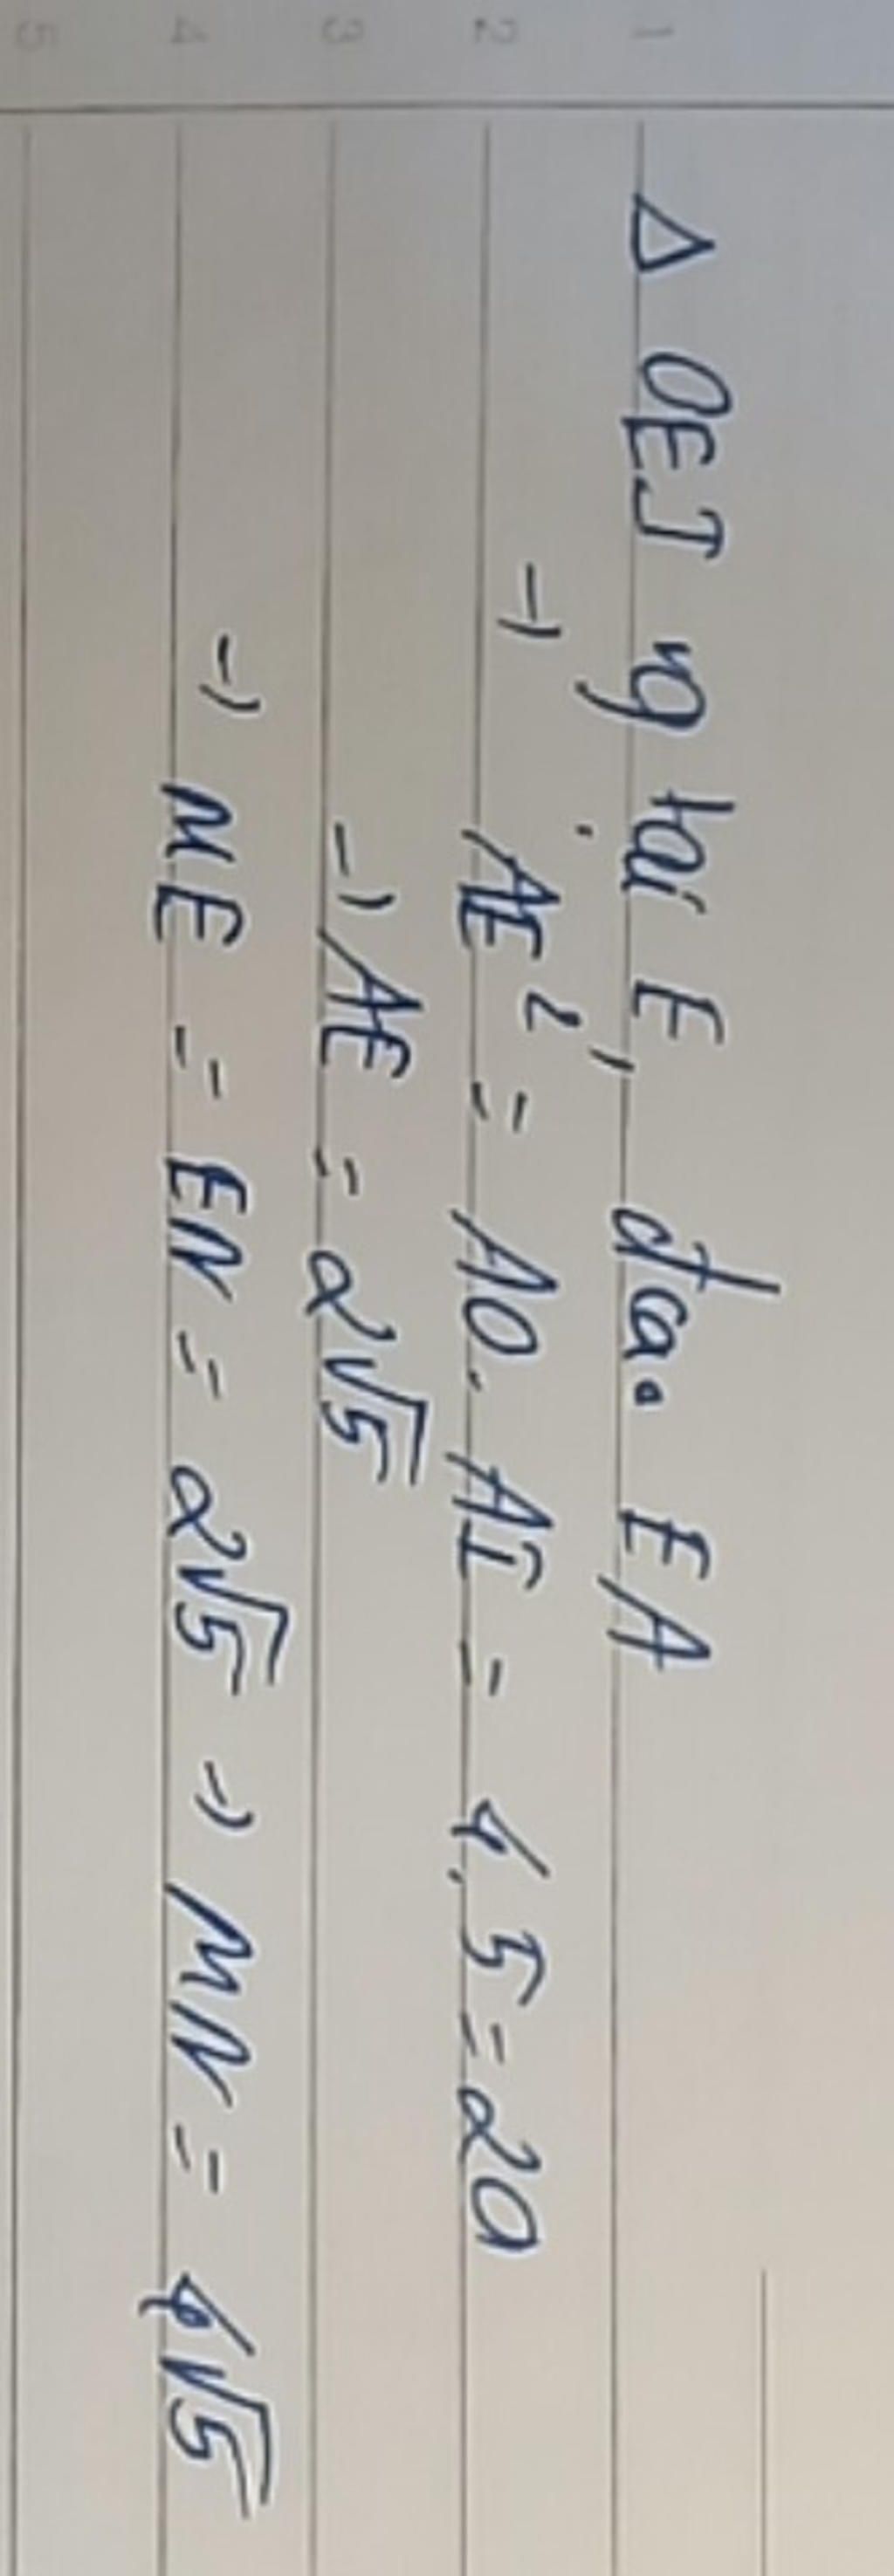 Δ OEI vg tại E, đcao EA
→ AE² = AO. AI = 4.5 = 20
→ AE = 2√5
→ ME = EN = 2√5 → MN = 4√5